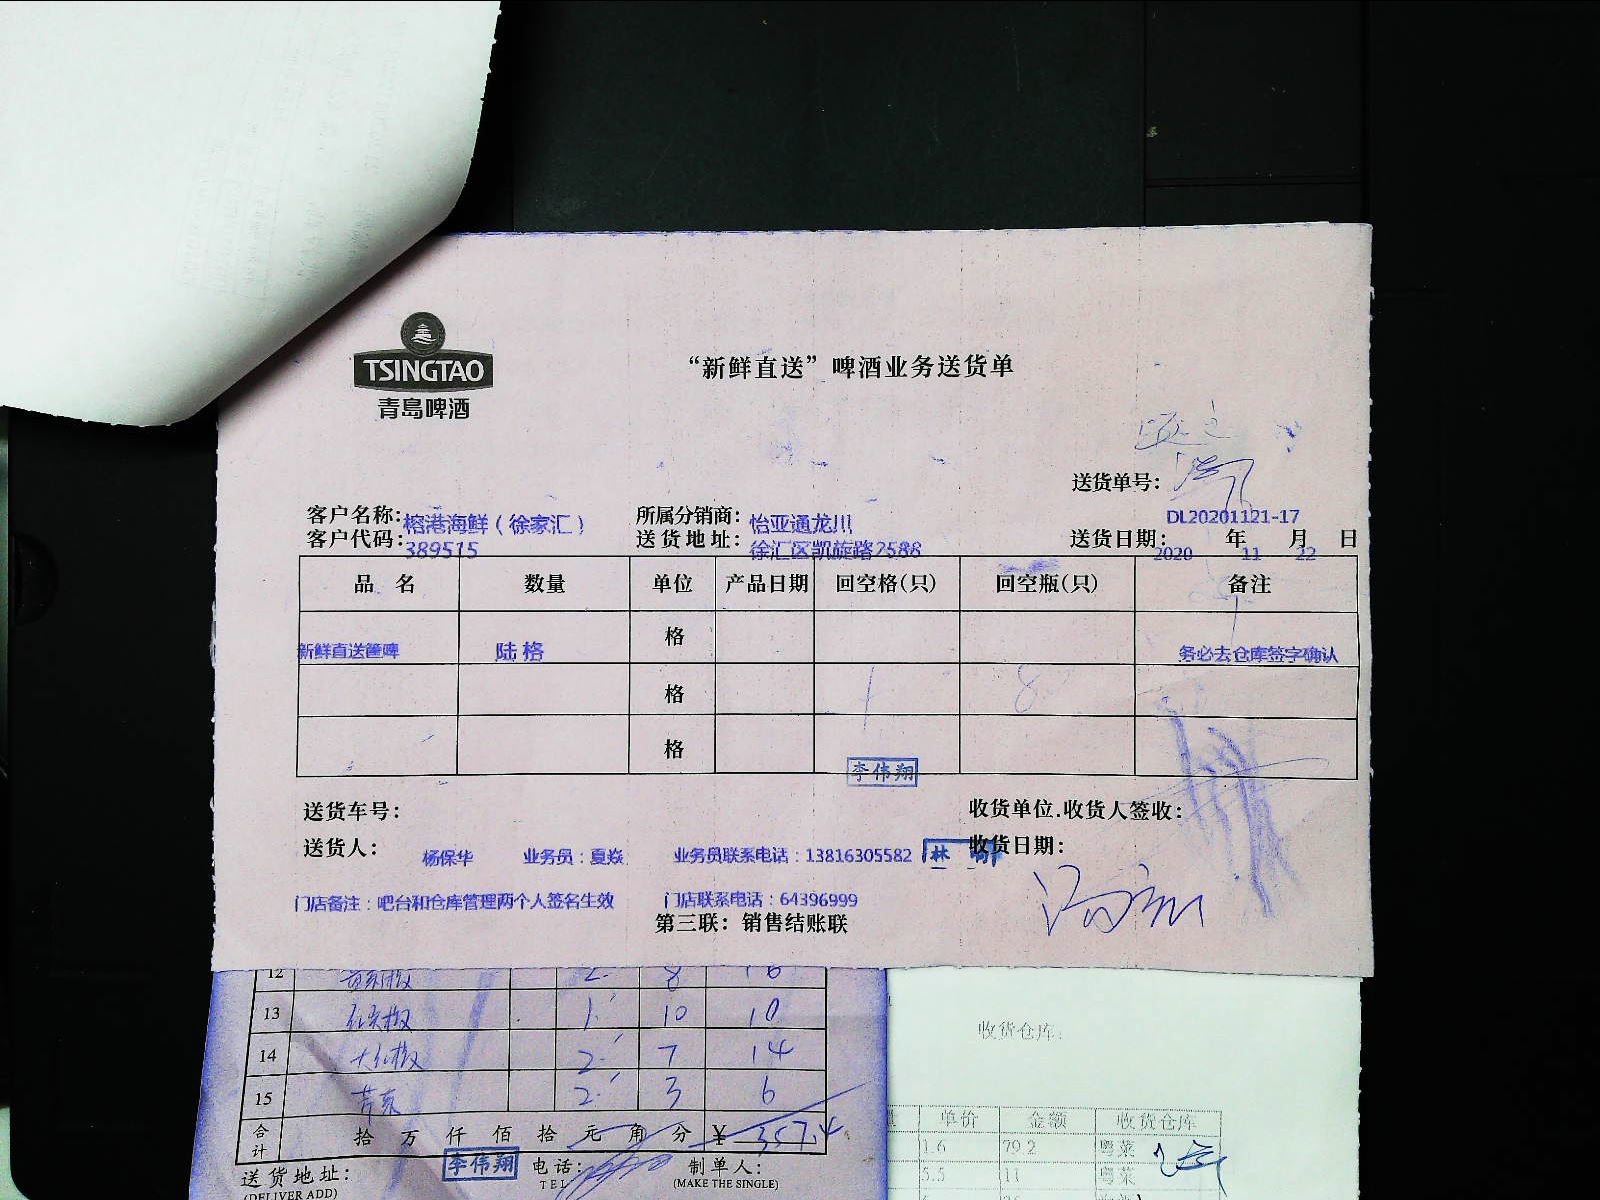 TSINGTAO
青島啤酒
“新鲜直送”啤酒业务送货单
送货单号：
DL20201121-17
客户名称：榕港海鲜（徐家汇） 所属分销商：怡亚通龙川
客户代码：389515 送货地址：徐汇区凯旋路2588 送货日期：2020年11月22日
品名 数量 单位 产品日期 回空格(只) 回空瓶(只) 备注
新鲜直送篚啤 陆格 格 务必去仓库签字确认
格 1 8
格
李伟翔
送货车号： 收货单位.收货人签收：
送货人： 杨保华 业务员：夏焱 业务员联系电话：13816305582 林 收货日期：
门店备注：吧台和仓库管理两个人签名生效 门店联系电话：64396999
第三联：销售结账联
12 2 8 16
13 1 10 10
14 2 7 14
15 2 3 6
合计 拾万仟佰拾元角分 ¥ 357.4
送货地址： 李伟翔 电话： 制单人：
(DELIVER ADD) TEL (MAKE THE SINGLE)
收货仓库：
单价 金额 收货仓库
1.6 79.2 粤菜
5.5 11 粤菜